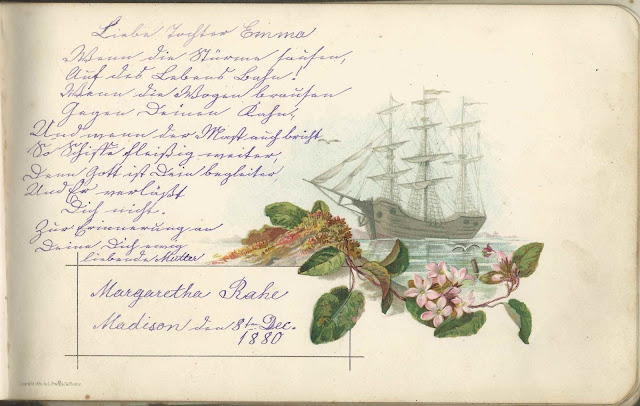 Liebe Tochter Emma
Wenn die Stürme sausen,
Auf des Lebens Bahn!
Wenn die Wogen brausen
Gegen Deinen Kahn,
Und wenn der Mast auch bricht
So Schiffe fleißig weiter,
Denn Gott ist Dein begleiter
Und Er verläßt
Dich nicht.
Zur Erinnerung an
Deine Dich ewig
liebende Mutter
Margaretha Rahe
Madison den 8ten Dec.
1880